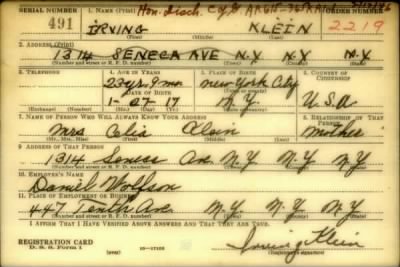 SERIAL NUMBER 1. NAME (Print) Hon. Disch. ORDER NUMBER
491 IRVING KLEIN 2219
2. ADDRESS (Print)
1314 SENECA AVE N.Y. N.Y. N.Y.
(Number and street or R. F. D. number) (Town) (County) (State)
3. TELEPHONE 4. AGE IN YEARS 5. PLACE OF BIRTH 6. COUNTRY OF CITIZENSHIP
23 yrs. 9 mo. New York City
DATE OF BIRTH
1- 27 17 N.Y. U.S.A
(Exchange) (Number) (Mo.) (Day) (Yr.) (State or country)
7. NAME OF PERSON WHO WILL ALWAYS KNOW YOUR ADDRESS 8. RELATIONSHIP OF THAT PERSON
Mrs Celia Klein Mother
(Mr., Mrs., Miss) (First) (Middle) (Last)
9. ADDRESS OF THAT PERSON
1314 Seneca Ave N.Y N.Y N.Y
(Number and street or R. F. D. number) (Town) (County) (State)
10. EMPLOYER'S NAME
Daniel Wolfson
11. PLACE OF EMPLOYMENT OR BUSINESS
447 Tenth Ave. N.Y N.Y N.Y
(Number and street or R. F. D. number) (Town) (County) (State)
I AFFIRM THAT I HAVE VERIFIED ABOVE ANSWERS AND THAT THEY ARE TRUE.
REGISTRATION CARD
D. S. S. Form 1 (over) 16-17105 Irving Klein